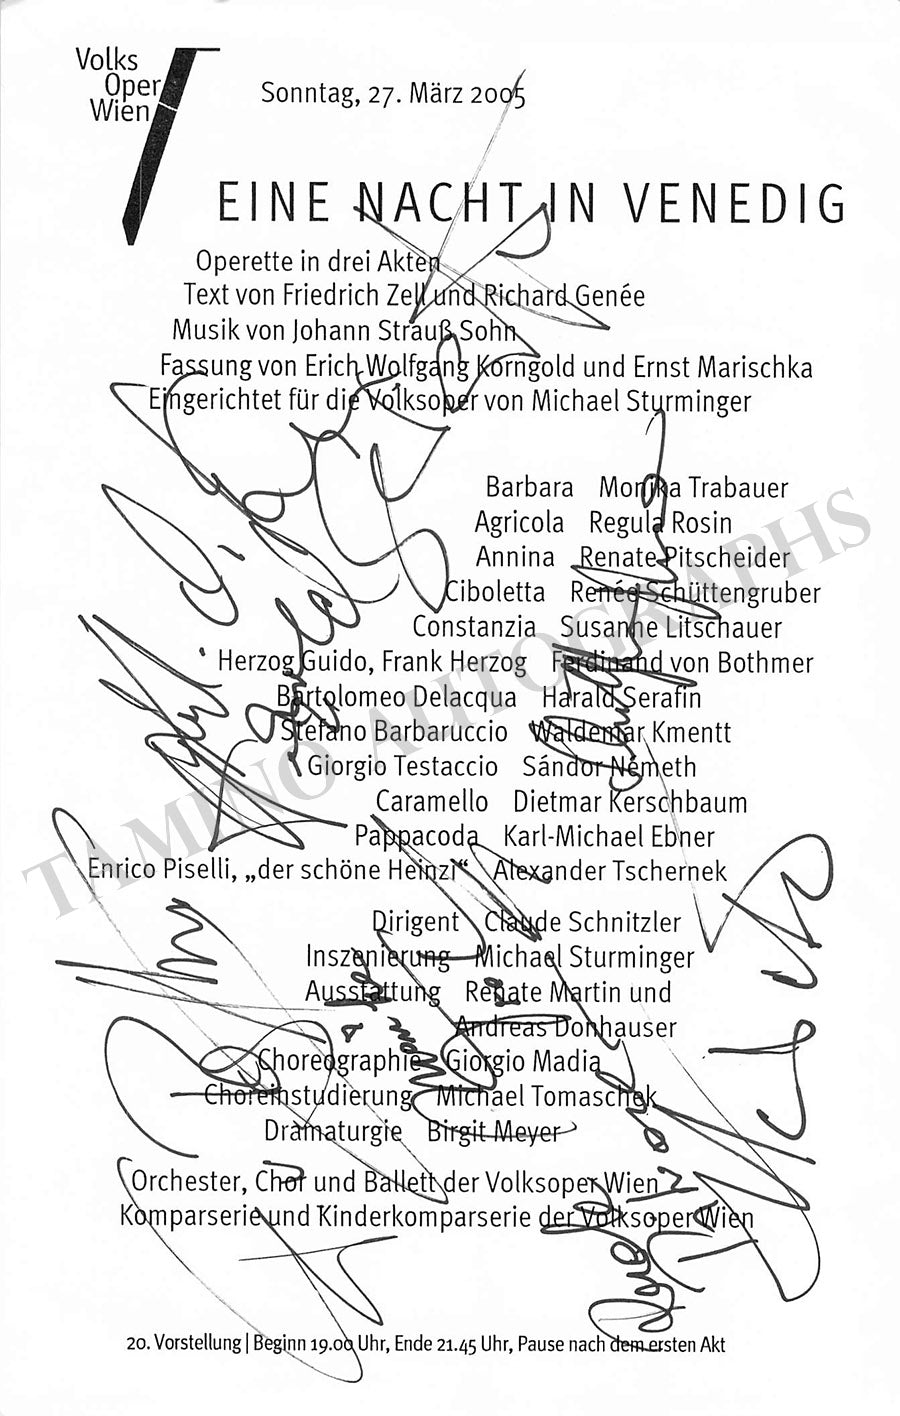 Volks
Oper
Wien
Sonntag, 27. März 2005
EINE NACHT IN VENEDIG
Operette in drei Akten
Text von Friedrich Zell und Richard Genée
Musik von Johann Strauß Sohn
Fassung von Erich Wolfgang Korngold und Ernst Marischka
Eingerichtet für die Volksoper von Michael Sturminger
Barbara Monika Trabauer
Agricola Regula Rosin
Annina Renate Pitscheider
Ciboletta Renée Schüttengruber
Constanzia Susanne Litschauer
Herzog Guido, Frank Herzog Ferdinand von Bothmer
Bartolomeo Delacqua Harald Serafin
Stefano Barbaruccio Waldemar Kmentt
Giorgio Testaccio Sándor Németh
Caramello Dietmar Kerschbaum
Pappacoda Karl-Michael Ebner
Enrico Piselli, „der schöne Heinzi“ Alexander Tschernek
Dirigent Claude Schnitzler
Inszenierung Michael Sturminger
Ausstattung Renate Martin und
Andreas Donhauser
Choreographie Giorgio Madia
Choreinstudierung Michael Tomaschek
Dramaturgie Birgit Meyer
Orchester, Chor und Ballett der Volksoper Wien
Komparserie und Kinderkomparserie der Volksoper Wien
20. Vorstellung | Beginn 19.00 Uhr, Ende 21.45 Uhr, Pause nach dem ersten Akt
TAMINO AUTOGRAPHS